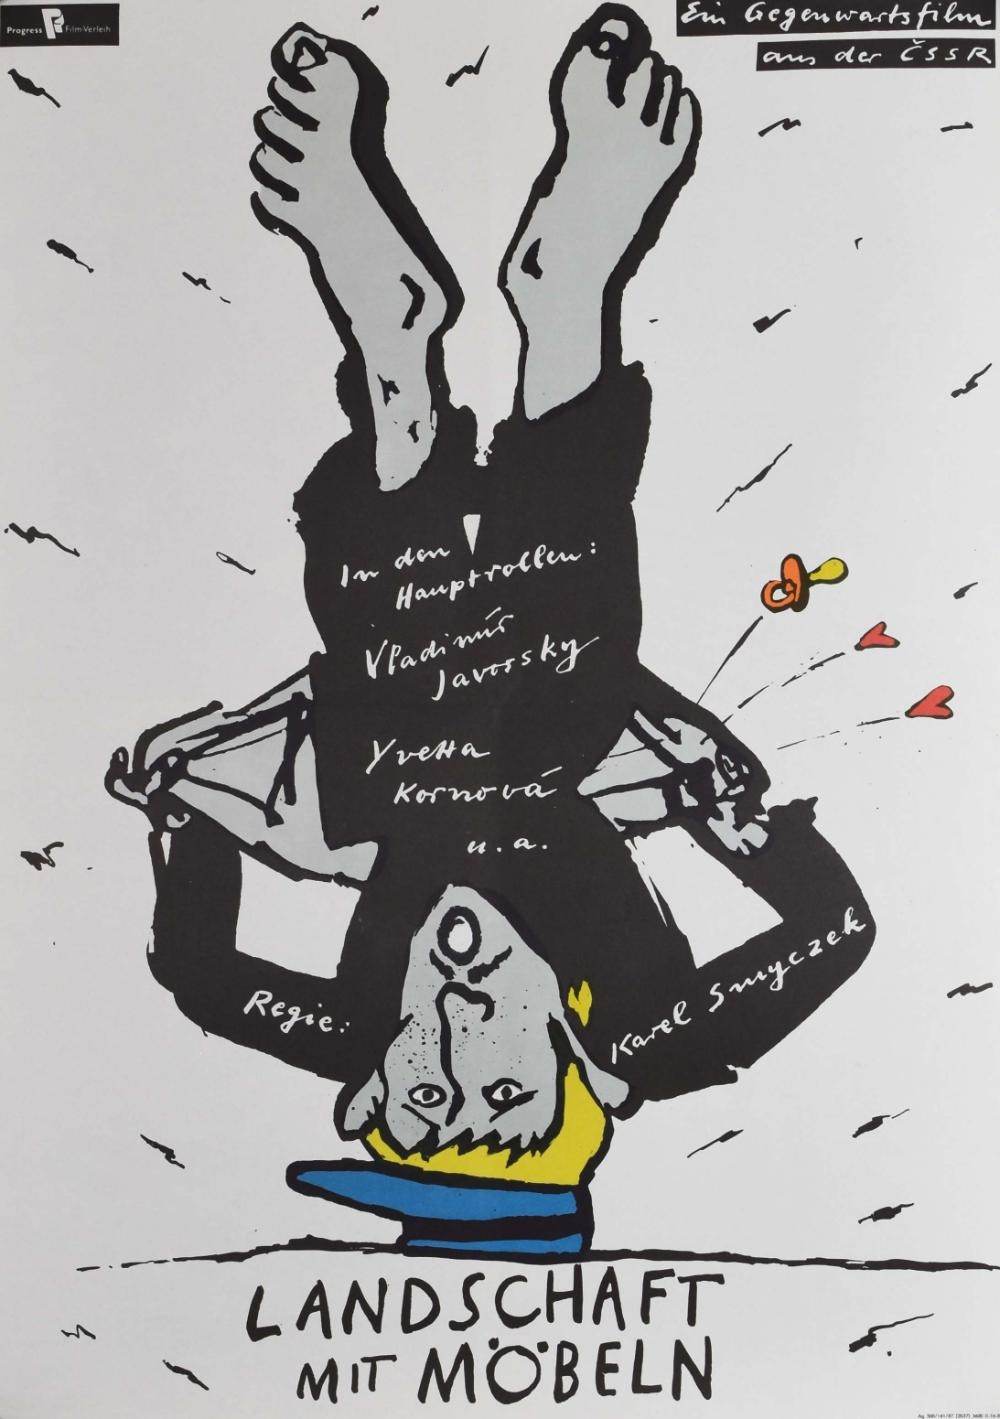 Progress Film-Verleih
Ein Gegenwartsfilm
aus der ČSSR
In den
Hauptrollen:
Vladimír
Javorsky
Yvetta
Kornová
u. a.
Regie:
Karel Smyczek
LANDSCHAFT
MIT MÖBELN